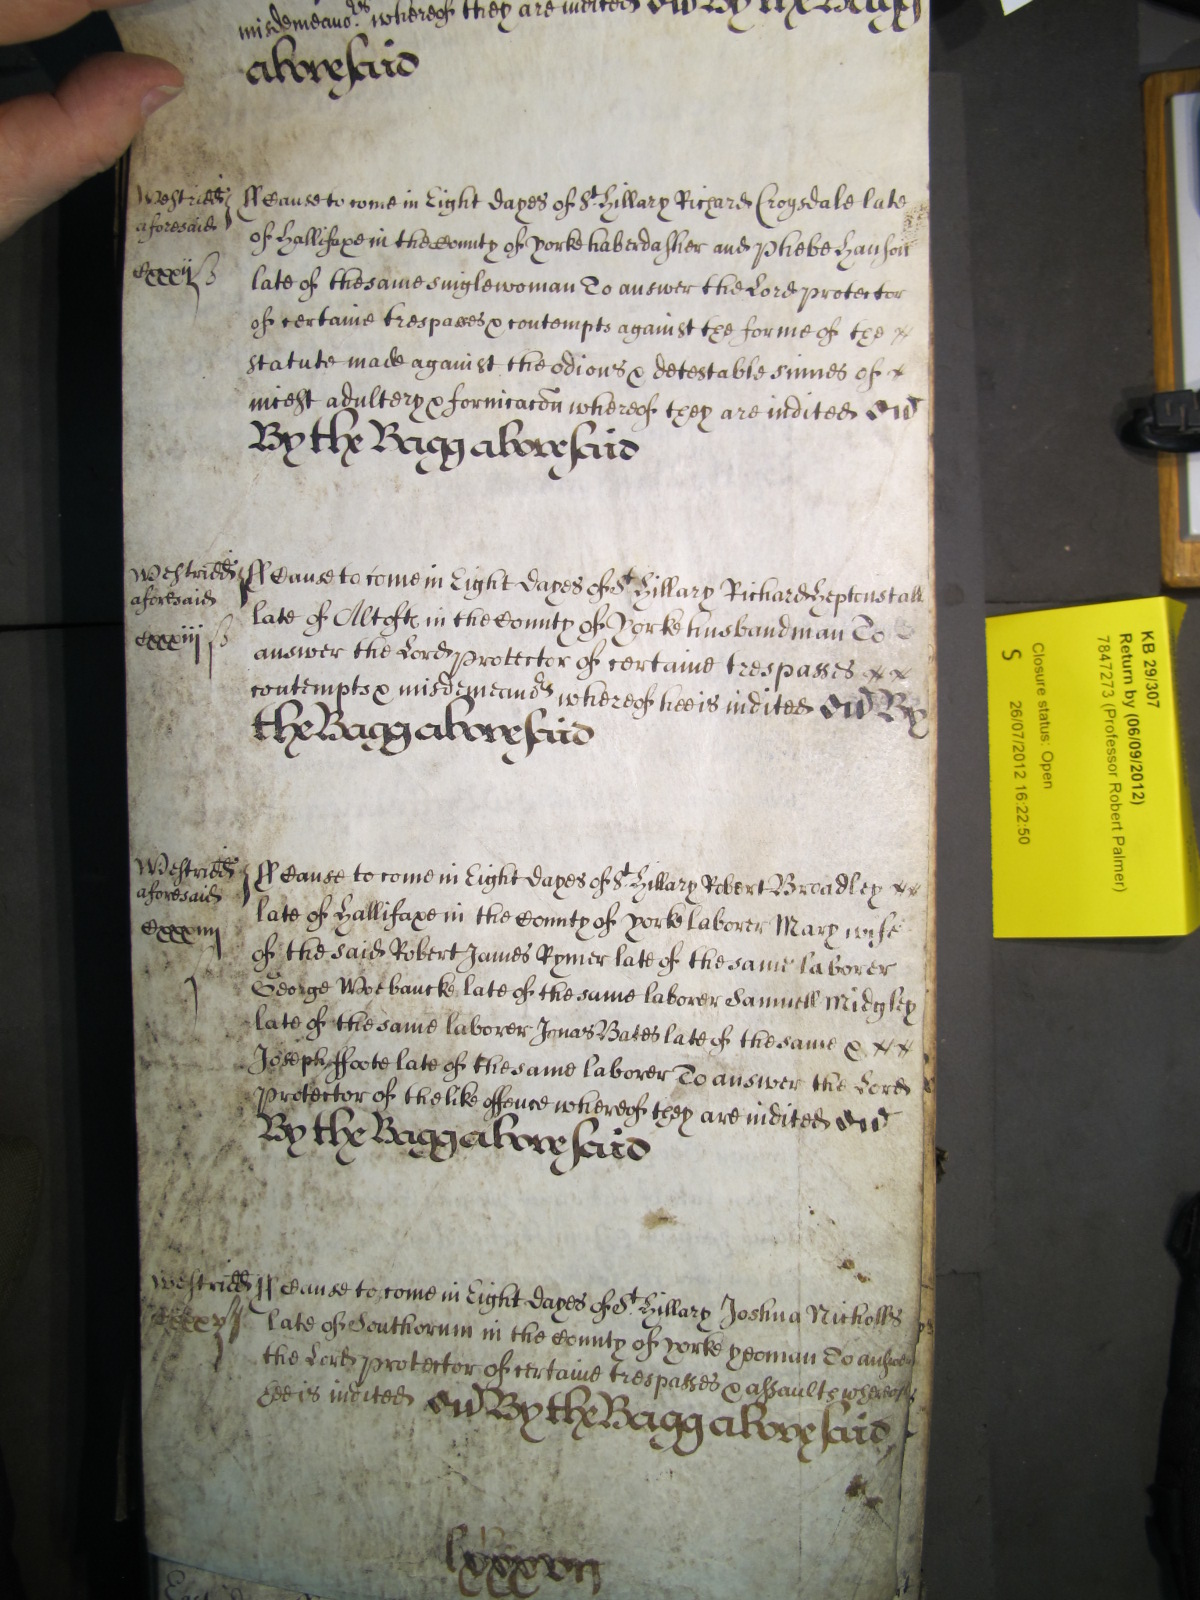 misdemeano.rs whereof they are indited Ow By the Bagg
abovesaid
Westridd
aforesaid
Cxxxij
Cause to come in Eight dayes of St. Hillary Richard Croysdale late
of Hallifaxe in the County of Yorke haberdasher and Phebe Hanson
late of the same singlewoman To answer the Lord Protector
of certaine trespasses & contempts against the forme of the
statute made against the odious & detestable sinnes of
incest adultery & fornicacon whereof they are indited Ow
By the Bagg abovesaid
Westridd
aforesaid
Cxxxiij
Cause to come in Eight dayes of St. Hillary Richard Heptonstall
late of Altofts in the County of Yorke husbandman To
answer the Lord Protector of certaine trespasses
contempts & misdemeanors whereof hee is indited Ow By
the Bagg abovesaid
Westridd
aforesaid
Cxxxiiij
Cause to come in Eight dayes of St. Hillary Robert Broadley
late of Hallifaxe in the County of Yorke laborer Mary wife
of the said Robert James Rymer late of the same laborer
George Woebancke late of the same laborer Samuell Midgley
late of the same laborer Jonas Bates late of the same &
Joseph ffoote late of the same laborer To answer the Lord
Protector of the like offence whereof they are indited Ow
By the Bagg abovesaid
Westridd
Cause to come in Eight dayes of St. Hillary Joshua Nicholls
late of Southorum in the County of Yorke yeoman To answer
the Lord Protector of certaine trespasses & assaults whereof
hee is indited Ow By the Bagg abovesaid
lxxxvij
KB 29/307
Return by (06/09/2012)
7847273 (Professor Robert Palmer)
Closure status: Open
S 26/07/2012 16:22:50